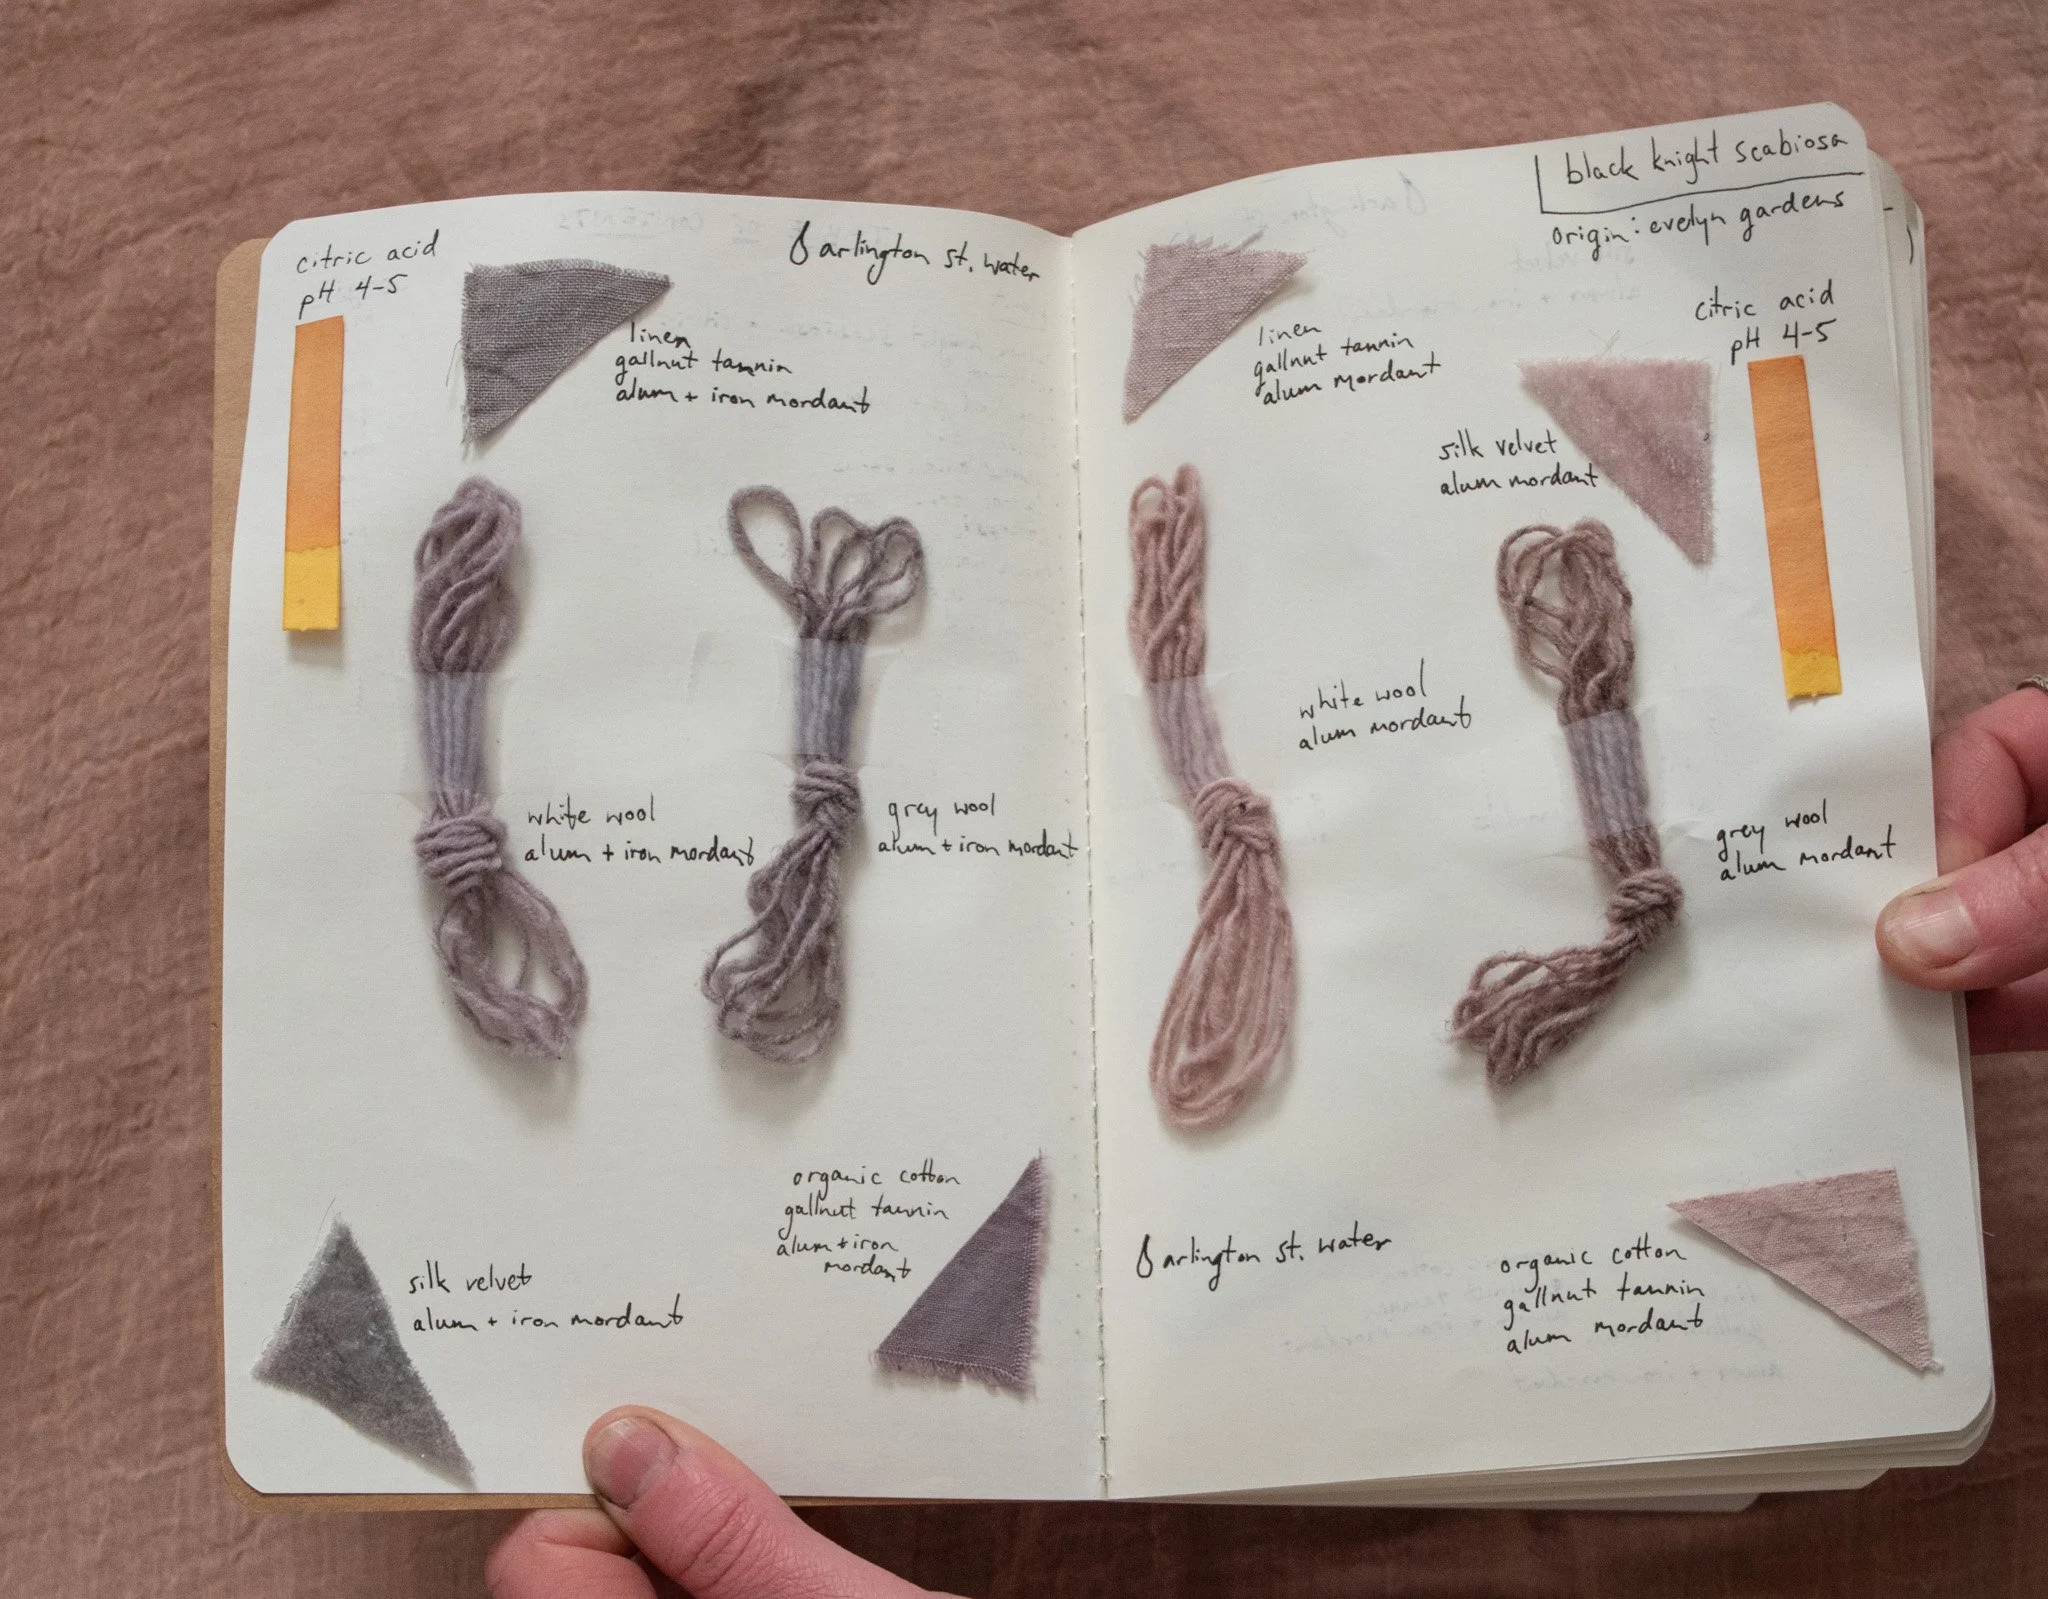 citric acid
pH 4-5
arlington st. water
linen
gallnut tannin
alum + iron mordant
white wool
alum + iron mordant
grey wool
alum + iron mordant
organic cotton
gallnut tannin
alum + iron
mordant
silk velvet
alum + iron mordant
black knight scabiosa
origin: evelyn gardens
citric acid
pH 4-5
linen
gallnut tannin
alum mordant
silk velvet
alum mordant
white wool
alum mordant
grey wool
alum mordant
arlington st. water
organic cotton
gallnut tannin
alum mordant